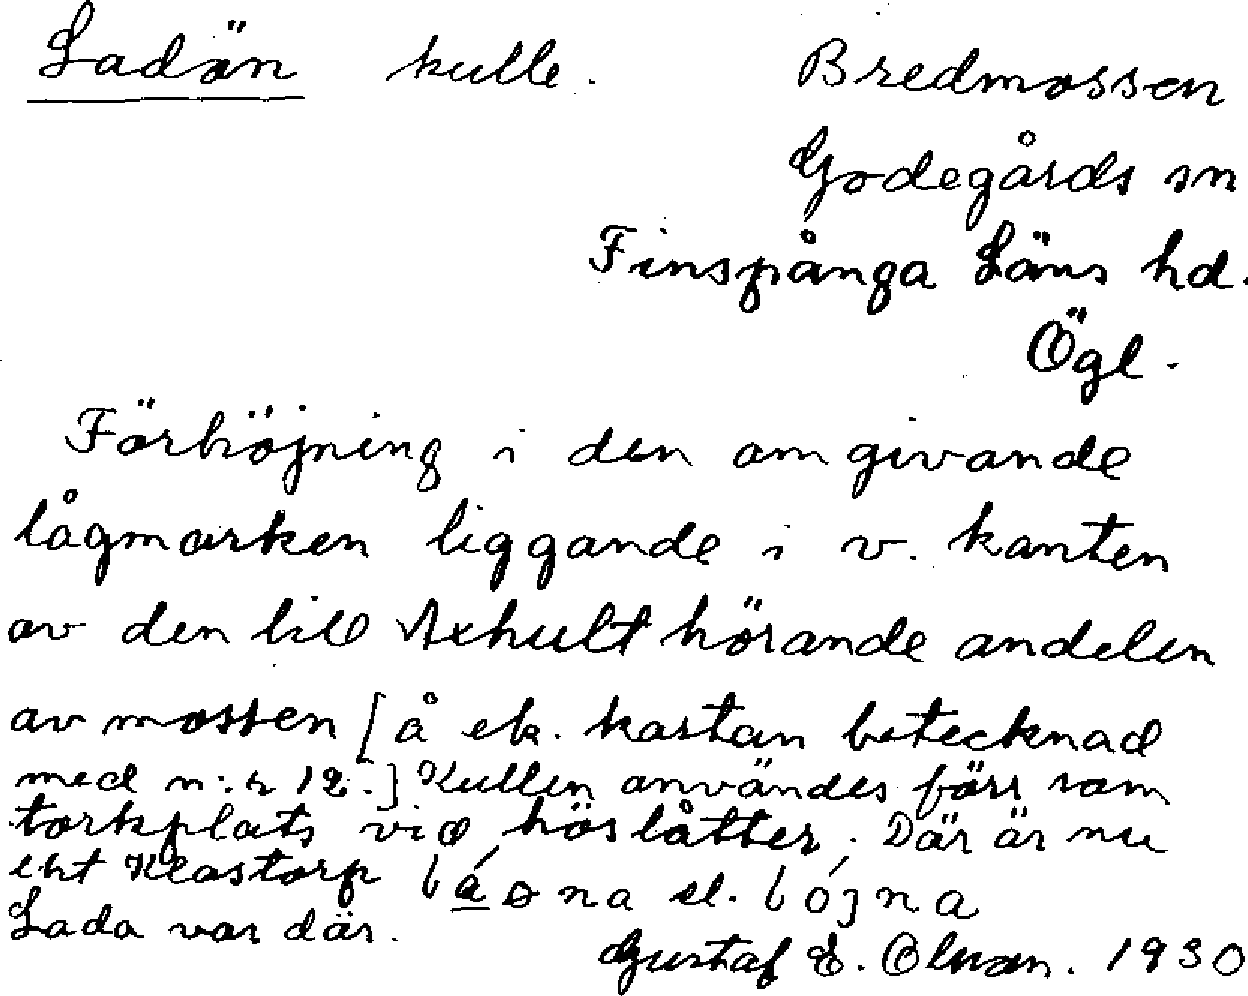 Ladön kulle. Bredmossen
Godegårds sn
Finspånga Läns hd.
Ögl.
Förhöjning i den omgivande
lågmarken liggande i v. kanten
av den till Axhult hörande andelen
av mossen [å ek. kartan betecknad
med n:r 12.] Kullen användes förr som
torkplats vid höslåtter. Där är nu
ett
Lada var där.
Gustaf E. Olsson. 1930